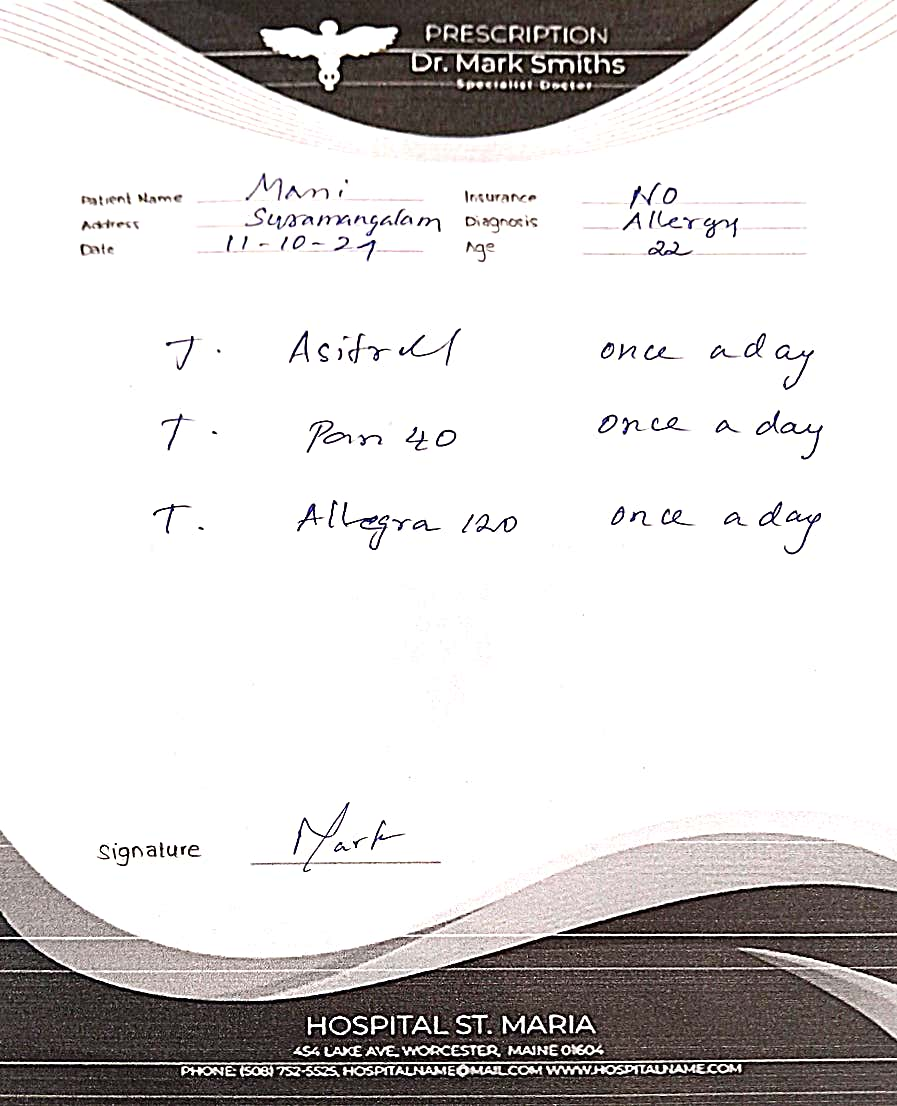 PRESCRIPTION
Dr. Mark Smiths
Specialist Doctor
Patient Name Mani Insurance NO
Address Suramangalam Diagnosis Allergy
Date 11-10-21 Age 22
T. once a day
T. Pan 40 once a day
T. Allegra 120 once a day
Signature Mark
HOSPITAL ST. MARIA
454 LAKE AVE, WORCESTER, MAINE 01604
PHONE: (508) 752-5525, HOSPITALNAME@MAIL.COM WWW.HOSPITALNAME.COM